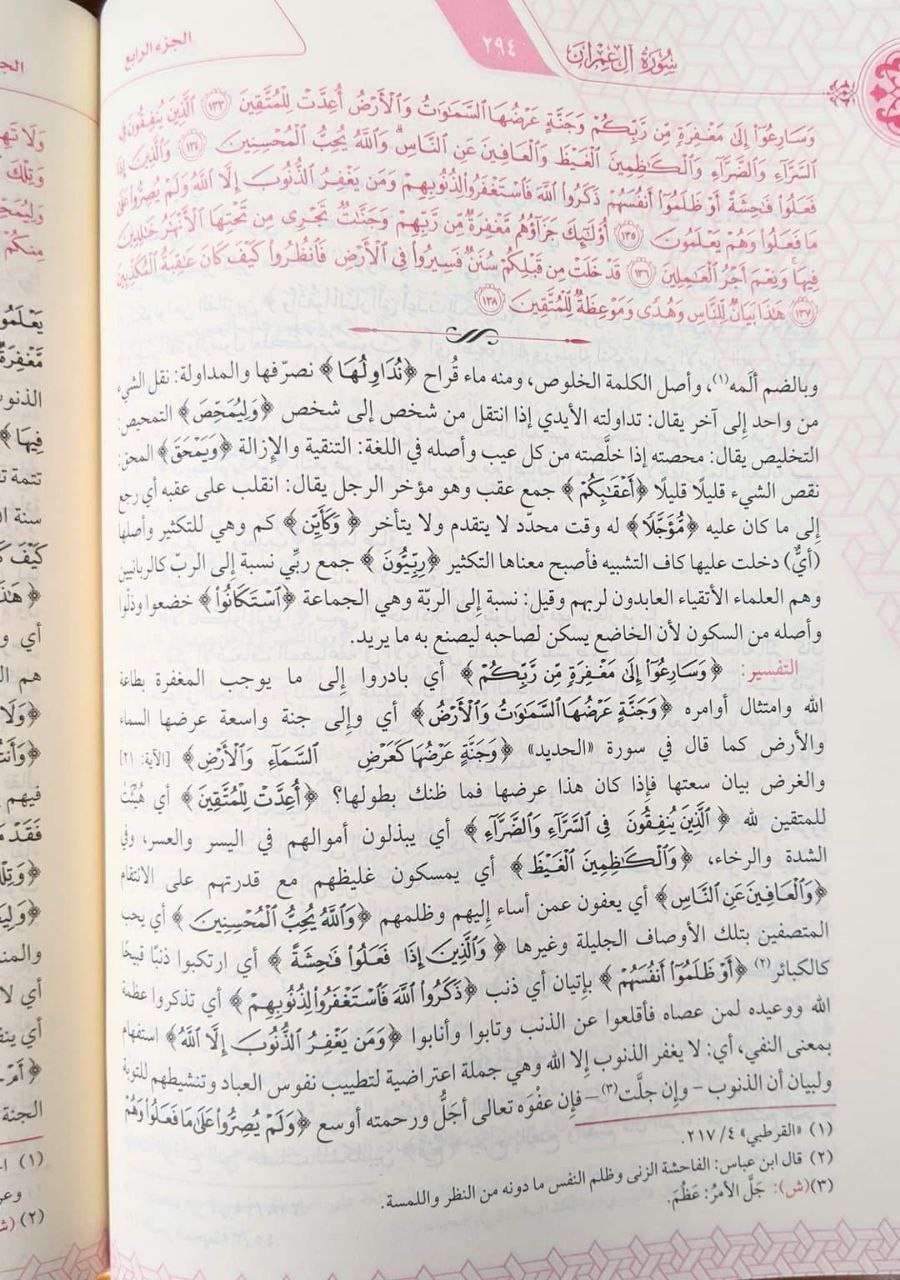 سُورَةُ آلِ عِمْرَانَ
٢٩٤
الجزء الرابع
وَسَارِعُوٓا۟ إِلَىٰ مَغْفِرَةٍ مِّن رَّبِّكُمْ وَجَنَّةٍ عَرْضُهَا ٱلسَّمَٰوَٰتُ وَٱلْأَرْضُ أُعِدَّتْ لِلْمُتَّقِينَ ١٣٣ ٱلَّذِينَ يُنفِقُونَ فِى
ٱلسَّرَّآءِ وَٱلضَّرَّآءِ وَٱلْكَٰظِمِينَ ٱلْغَيْظَ وَٱلْعَافِينَ عَنِ ٱلنَّاسِ ۗ وَٱللَّهُ يُحِبُّ ٱلْمُحْسِنِينَ ١٣٤ وَٱلَّذِينَ إِذَا
فَعَلُوا۟ فَٰحِشَةً أَوْ ظَلَمُوٓا۟ أَنفُسَهُمْ ذَكَرُوا۟ ٱللَّهَ فَٱسْتَغْفَرُوا۟ لِذُنُوبِهِمْ وَمَن يَغْفِرُ ٱلذُّنُوبَ إِلَّا ٱللَّهُ وَلَمْ يُصِرُّوا۟ عَلَىٰ
مَا فَعَلُوا۟ وَهُمْ يَعْلَمُونَ ١٣٥ أُو۟لَٰٓئِكَ جَزَآؤُهُم مَّغْفِرَةٌ مِّن رَّبِّهِمْ وَجَنَّٰتٌ تَجْرِى مِن تَحْتِهَا ٱلْأَنْهَٰرُ خَٰلِدِينَ
فِيهَا ۚ وَنِعْمَ أَجْرُ ٱلْعَٰمِلِينَ ١٣٦ قَدْ خَلَتْ مِن قَبْلِكُمْ سُنَنٌ فَسِيرُوا۟ فِى ٱلْأَرْضِ فَٱنظُرُوا۟ كَيْفَ كَانَ عَٰقِبَةُ ٱلْمُكَذِّبِينَ
١٣٧ هَٰذَا بَيَانٌ لِّلنَّاسِ وَهُدًى وَمَوْعِظَةٌ لِّلْمُتَّقِينَ ١٣٨
وبالضم ألَمه(١)، وأصل الكلمة الخلوص، ومنه ماء قُراح ﴿نُدَاوِلُهَا﴾ نصرّفها والمداولة: نقل الشيء
من واحد إلى آخر يقال: تداولته الأيدي إذا انتقل من شخص إلى شخص ﴿وَلِيُمَحِّصَ﴾ التمحيص:
التخليص يقال: محصته إذا خلَّصته من كل عيب وأصله في اللغة: التنقية والإزالة ﴿وَيَمْحَقَ﴾ المحق:
نقص الشيء قليلًا قليلًا ﴿أَعْقَٰبِكُمْ﴾ جمع عقب وهو مؤخر الرجل يقال: انقلب على عقبه أي رجع
إلى ما كان عليه ﴿مُّؤَجَّلًا﴾ له وقت محدّد لا يتقدم ولا يتأخر ﴿وَكَأَيِّن﴾ كم وهي للتكثير وأصلها
(أيٌّ) دخلت عليها كاف التشبيه فأصبح معناها التكثير ﴿رِبِّيُّونَ﴾ جمع ربِّي نسبة إلى الربّ كالربانيين
وهم العلماء الأتقياء العابدون لربهم وقيل: نسبة إلى الربّة وهي الجماعة ﴿ٱسْتَكَانُوا۟﴾ خضعوا وذلّوا
وأصله من السكون لأن الخاضع يسكن لصاحبه ليصنع به ما يريد.
التفسير: ﴿وَسَارِعُوٓا۟ إِلَىٰ مَغْفِرَةٍ مِّن رَّبِّكُمْ﴾ أي بادروا إلى ما يوجب المغفرة بطاعة
الله وامتثال أوامره ﴿وَجَنَّةٍ عَرْضُهَا ٱلسَّمَٰوَٰتُ وَٱلْأَرْضُ﴾ أي وإلى جنة واسعة عرضها السماء
والأرض كما قال في سورة «الحديد» ﴿وَجَنَّةٍ عَرْضُهَا كَعَرْضِ ٱلسَّمَآءِ وَٱلْأَرْضِ﴾ [الآية: ٢١]
والغرض بيان سعتها فإذا كان هذا عرضها فما ظنك بطولها؟ ﴿أُعِدَّتْ لِلْمُتَّقِينَ﴾ أي هُيِّئَتْ
للمتقين لله ﴿ٱلَّذِينَ يُنفِقُونَ فِى ٱلسَّرَّآءِ وَٱلضَّرَّآءِ﴾ أي يبذلون أموالهم في اليسر والعسر، وفي
الشدة والرخاء، ﴿وَٱلْكَٰظِمِينَ ٱلْغَيْظَ﴾ أي يمسكون غليظهم مع قدرتهم على الانتقام
﴿وَٱلْعَافِينَ عَنِ ٱلنَّاسِ﴾ أي يعفون عمن أساء إليهم وظلمهم ﴿وَٱللَّهُ يُحِبُّ ٱلْمُحْسِنِينَ﴾ أي يحب
المتصفين بتلك الأوصاف الجليلة وغيرها ﴿وَٱلَّذِينَ إِذَا فَعَلُوا۟ فَٰحِشَةً﴾ أي ارتكبوا ذنبًا قبيحًا
كالكبائر(٢) ﴿أَوْ ظَلَمُوٓا۟ أَنفُسَهُمْ﴾ بإتيان أي ذنب ﴿ذَكَرُوا۟ ٱللَّهَ فَٱسْتَغْفَرُوا۟ لِذُنُوبِهِمْ﴾ أي تذكروا عظمة
الله ووعيده لمن عصاه فأقلعوا عن الذنب وتابوا وأنابوا ﴿وَمَن يَغْفِرُ ٱلذُّنُوبَ إِلَّا ٱللَّهُ﴾ استفهام
بمعنى النفي، أي: لا يغفر الذنوب إلا الله وهي جملة اعتراضية لتطييب نفوس العباد وتنشيطهم للتوبة
ولبيان أن الذنوب - وإن جلَّت(٣) - فإن عفْوَه تعالى أجَلُّ ورحمته أوسع ﴿وَلَمْ يُصِرُّوا۟ عَلَىٰ مَا فَعَلُوا۟ وَهُمْ
(١) «القرطبي» ٤/ ٢١٧.
(٢) قال ابن عباس: الفاحشة الزنى وظلم النفس ما دونه من النظر واللمسة.
(٣)(ش): جَلَّ الأمرُ: عَظُمَ.